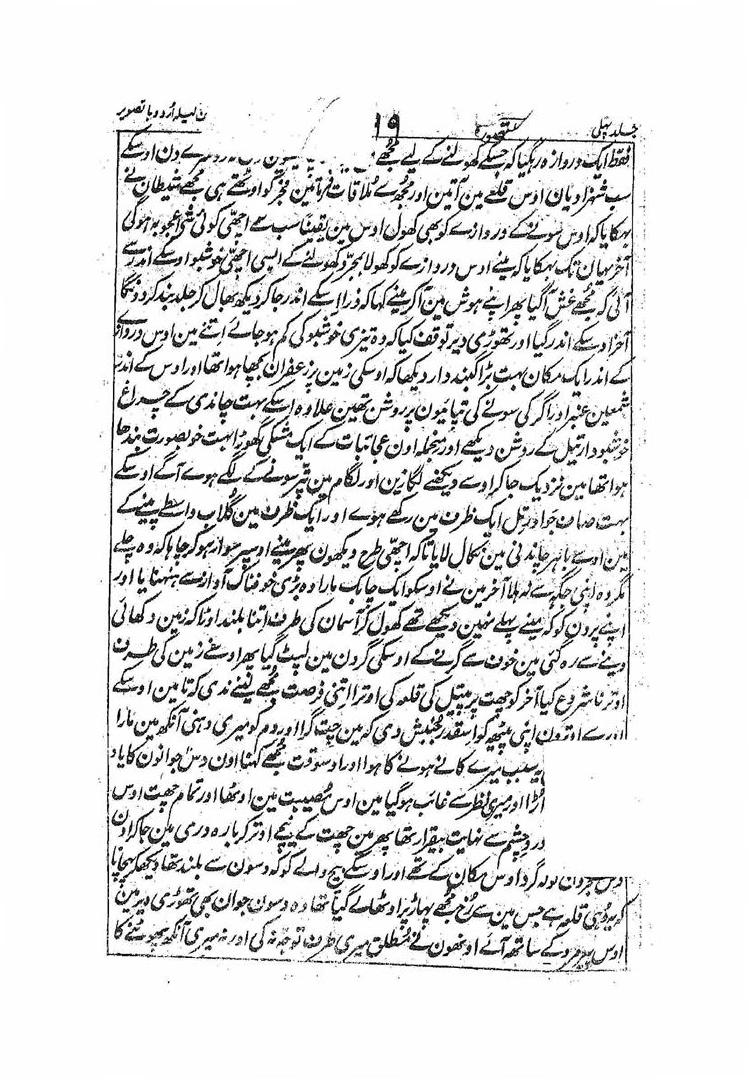 جلد پہلی ۱۹ ت لیلہ اُردو با تصویر
فقط ایک دروازہ رہگیا کہ جسکے کھولنے کے لیے مجھے دن اوسکے
سب شہزادیان اوس قلعے مین آتین اور مجھ سے مُلاقات فرمائین فجر کو اوٹھتے ہی مجھے شیطان نے
بہکایا کہ اوس سونے کے دروازے کو بھی کھول اوس مین یقیناً سب سے اچھی کوئی شی اعجوبہ ہوگی
آخر یہان تک بہکایا کہ مینے اوس دروازے کو کھولا بمجرد کھولنے کے ایسی اچھی خوشبو اوسکے اندر سے
آئی کہ مجھے غش آگیا پھر اپنے ہوش مین آکر مینے کہا کہ ذرا اسکے اندر جا کر دیکھ بھال کر جلد بند کر دونگا
آخر اوسکے اندر گیا اور تھوڑی دیر توقف کیا کہ وہ تیزی خوشبو کی کم ہو جائے اتنے مین اوس دروازے
کے اندر ایک مکان بہت بڑا گنبد دار دیکھا کہ اوسکی زمین پر زعفران بچھا ہوا تھا اور اوس کے اندر
شمعین عنبر اور اگر کی سونے کی تپائیون پر روشن تھین علاوہ اسکے بہت چاندی کے چراغ
خوشبودار تیل کے روشن دیکھے اور منجملہ اون عجائبات کے ایک مشکی گھوڑا بہت خوبصورت بندھا
ہوا تھا مین نزدیک جا کر اوسے دیکھنے لگا زین اور لگام مین پتر سونے کے لگے ہوے آگے اوسکے
بہت صاف جَو اور تل ایک ظرف مین رکھے ہوے اور ایک ظرف مین گلاب واسطے پینے کے
مین اوسے باہر چاندنی مین نکال لایا تاکہ اچھی طرح دیکھون پھر مینے اوسپر سوار ہوکر چاہا کہ وہ چلے
مگر وہ اپنی جگہ سے نہ ہلا آخر مین نے اوسکو ایک چابک مارا وہ بڑی خوفناک آواز سے ہنہنایا اور
اپنے پردن کو کہ مینے پہلے نہین دیکھے تھے کھول کر آسمان کی طرف اتنا بلند اوڑا کہ زمین دکھائی
دینے سے رہ گئی مین خوف سے گرنے کے اوسکی گردن مین لپٹ گیا پھر اوسنے زمین کی طرف
اوترنا شروع کیا آخر کو چھت پر پیتل کی قلعہ کی اوترا اتنی فرصت مجھے لینے ندی کہ تا مین اوسکے
اوپر سے اوترون اپنی پیٹھ کو اسقدر جُنبش دی کہ مین چت گرا اور دم کو میری دہنی آنکھ مین مارا
یہ سبب میرے کانے ہونے کا ہوا اور اوسوقت مجھے کہنا اون دس جوانون کا یاد
اُڑا اور میری نظر سے غائب ہوگیا مین اوس مُصیبت مین اوٹھا اور تمام چھت اوس
دردِ چشم سے نہایت بیقرار تھا پھر مین چھت کے نیچے اوتر کر بارہ دری مین جا کر اون
دس گرد اوس مکان کے تھے اور اوسکے بیچ والے کو کہ دسون سے بلند تھا دیکھ کر پہچانا
کہ یہ وُہی قلعہ ہے جس مین سے رُخ مجھے پہاڑ پر اوٹھا لے گیا تھا وہ دسون جوان بھی تھوڑی دیر مین
اوس پیر مرد کے ساتھ آئے اونھون نے مُطلق میری طرف توجہ نہ کی اور نہ میری آنکھ پھوٹنے کا